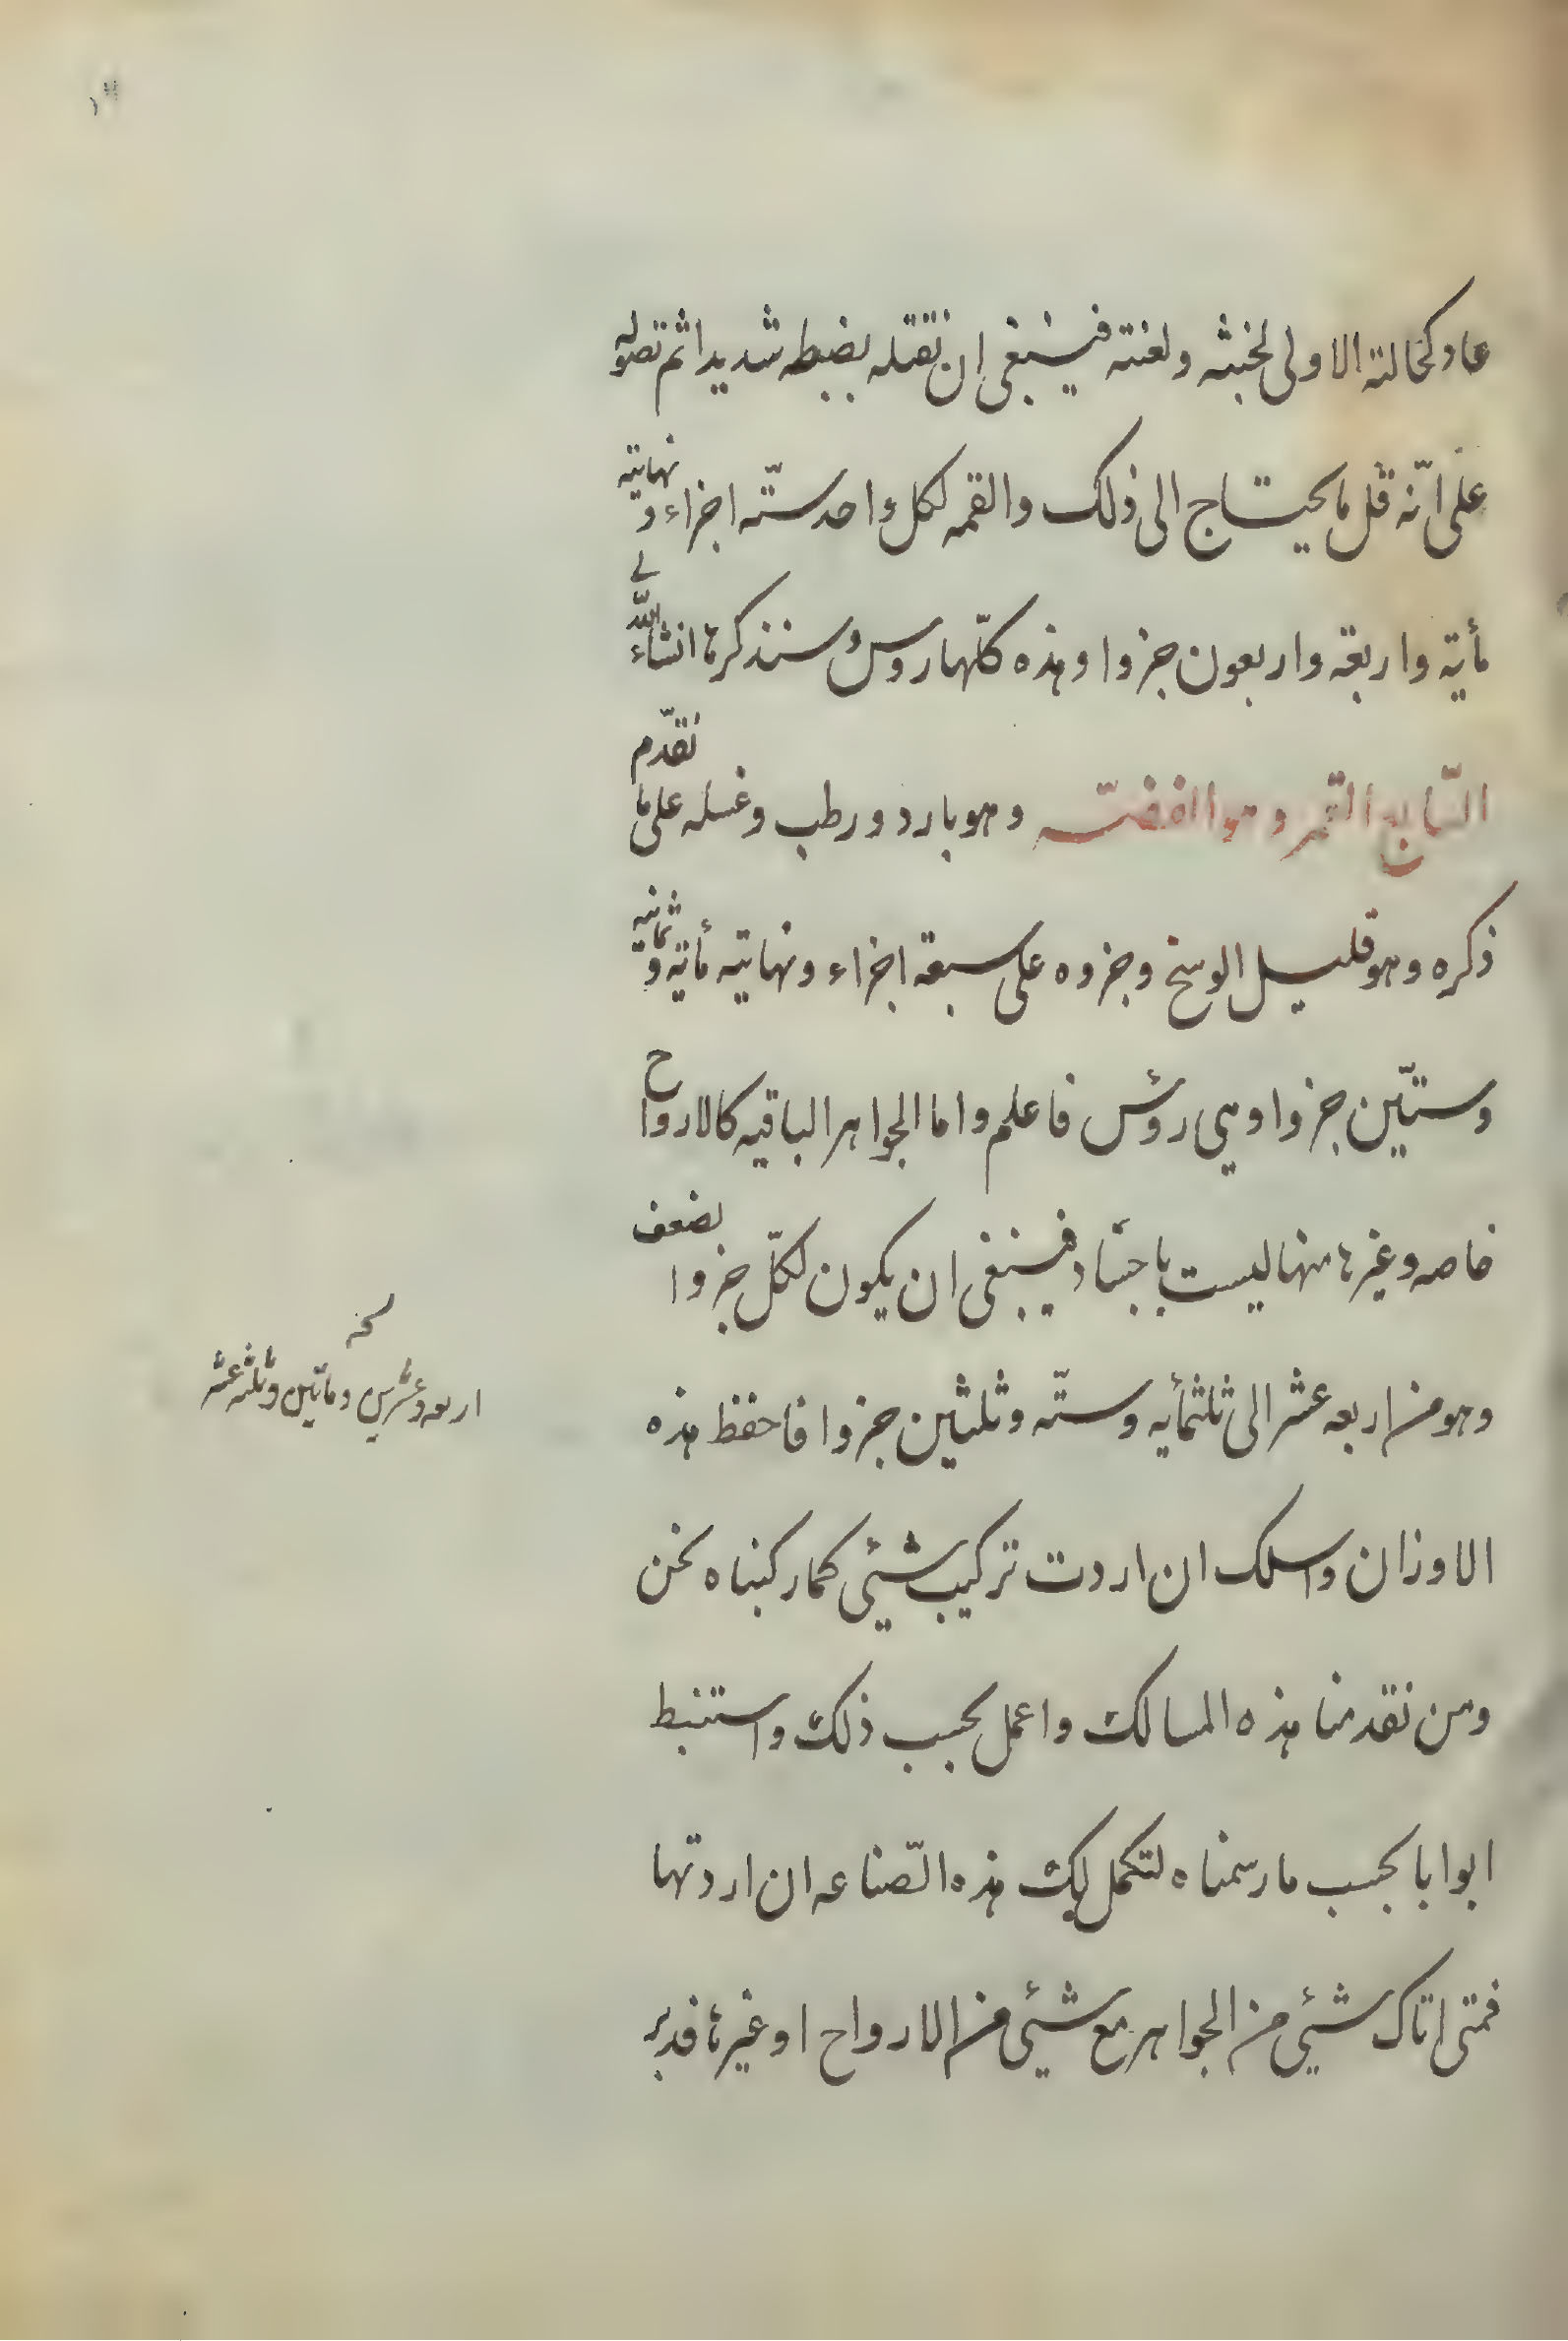 عاد كحالته الاولى لخبثه ولغنته فينبغى ان تقتله بضبطه شديدا ثم تصوله
على انّه قل ما يحتاج الى ذلك والقمه لكل واحد ستّه اجزاء ونهايته
مأية واربعة واربعون جزوا وهذه كلّها روس وسنذكرها انشاء الله
السّابع القمر وهو الفضّته وهو بارد ورطب وغسله على ما تقدّم
ذكره وهو قليل الوسخ وجزوه على سبعة اجزاء ونهايته مأية وثمانيه
وستّين جزوا وهي رؤس فاعلم واما الجواهر الباقيه كالارواح
خاصه وغيرها منها ليست باجساد فينبغى ان يكون لكلّ جزوا بضعف
وهو من اربعه عشر الى ثلثمأيه وستّه وثلثين جزوا فاحفظ هذه
اربعه وعشرين ومأتين وثلثه عشر
الاوزان واسلك ان اردت تركيب شيئى كما ركبناه نحن
ومن تقدمنا هذه المسالك واعمل بحسب ذلك واستنبط
ابوابا بحسب ما رسمناه لتكمل لك هذه الصّناعه ان اردتها
فمتى اتاك شيئى من الجواهر مع شيئى من الارواح او غيرها فدبر